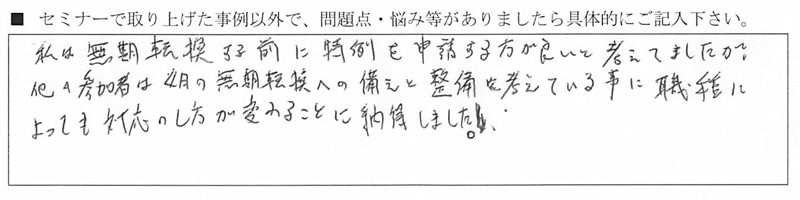 ■ セミナーで取り上げた事例以外で、問題点・悩み等がありましたら具体的にご記入下さい。
私は無期転換する前に特例を申請する方が良いと考えてましたが、
他の参加者は4月の無期転換への備えと整備を考えている事に職種に
よっても対応のし方が変わることに納得しました。